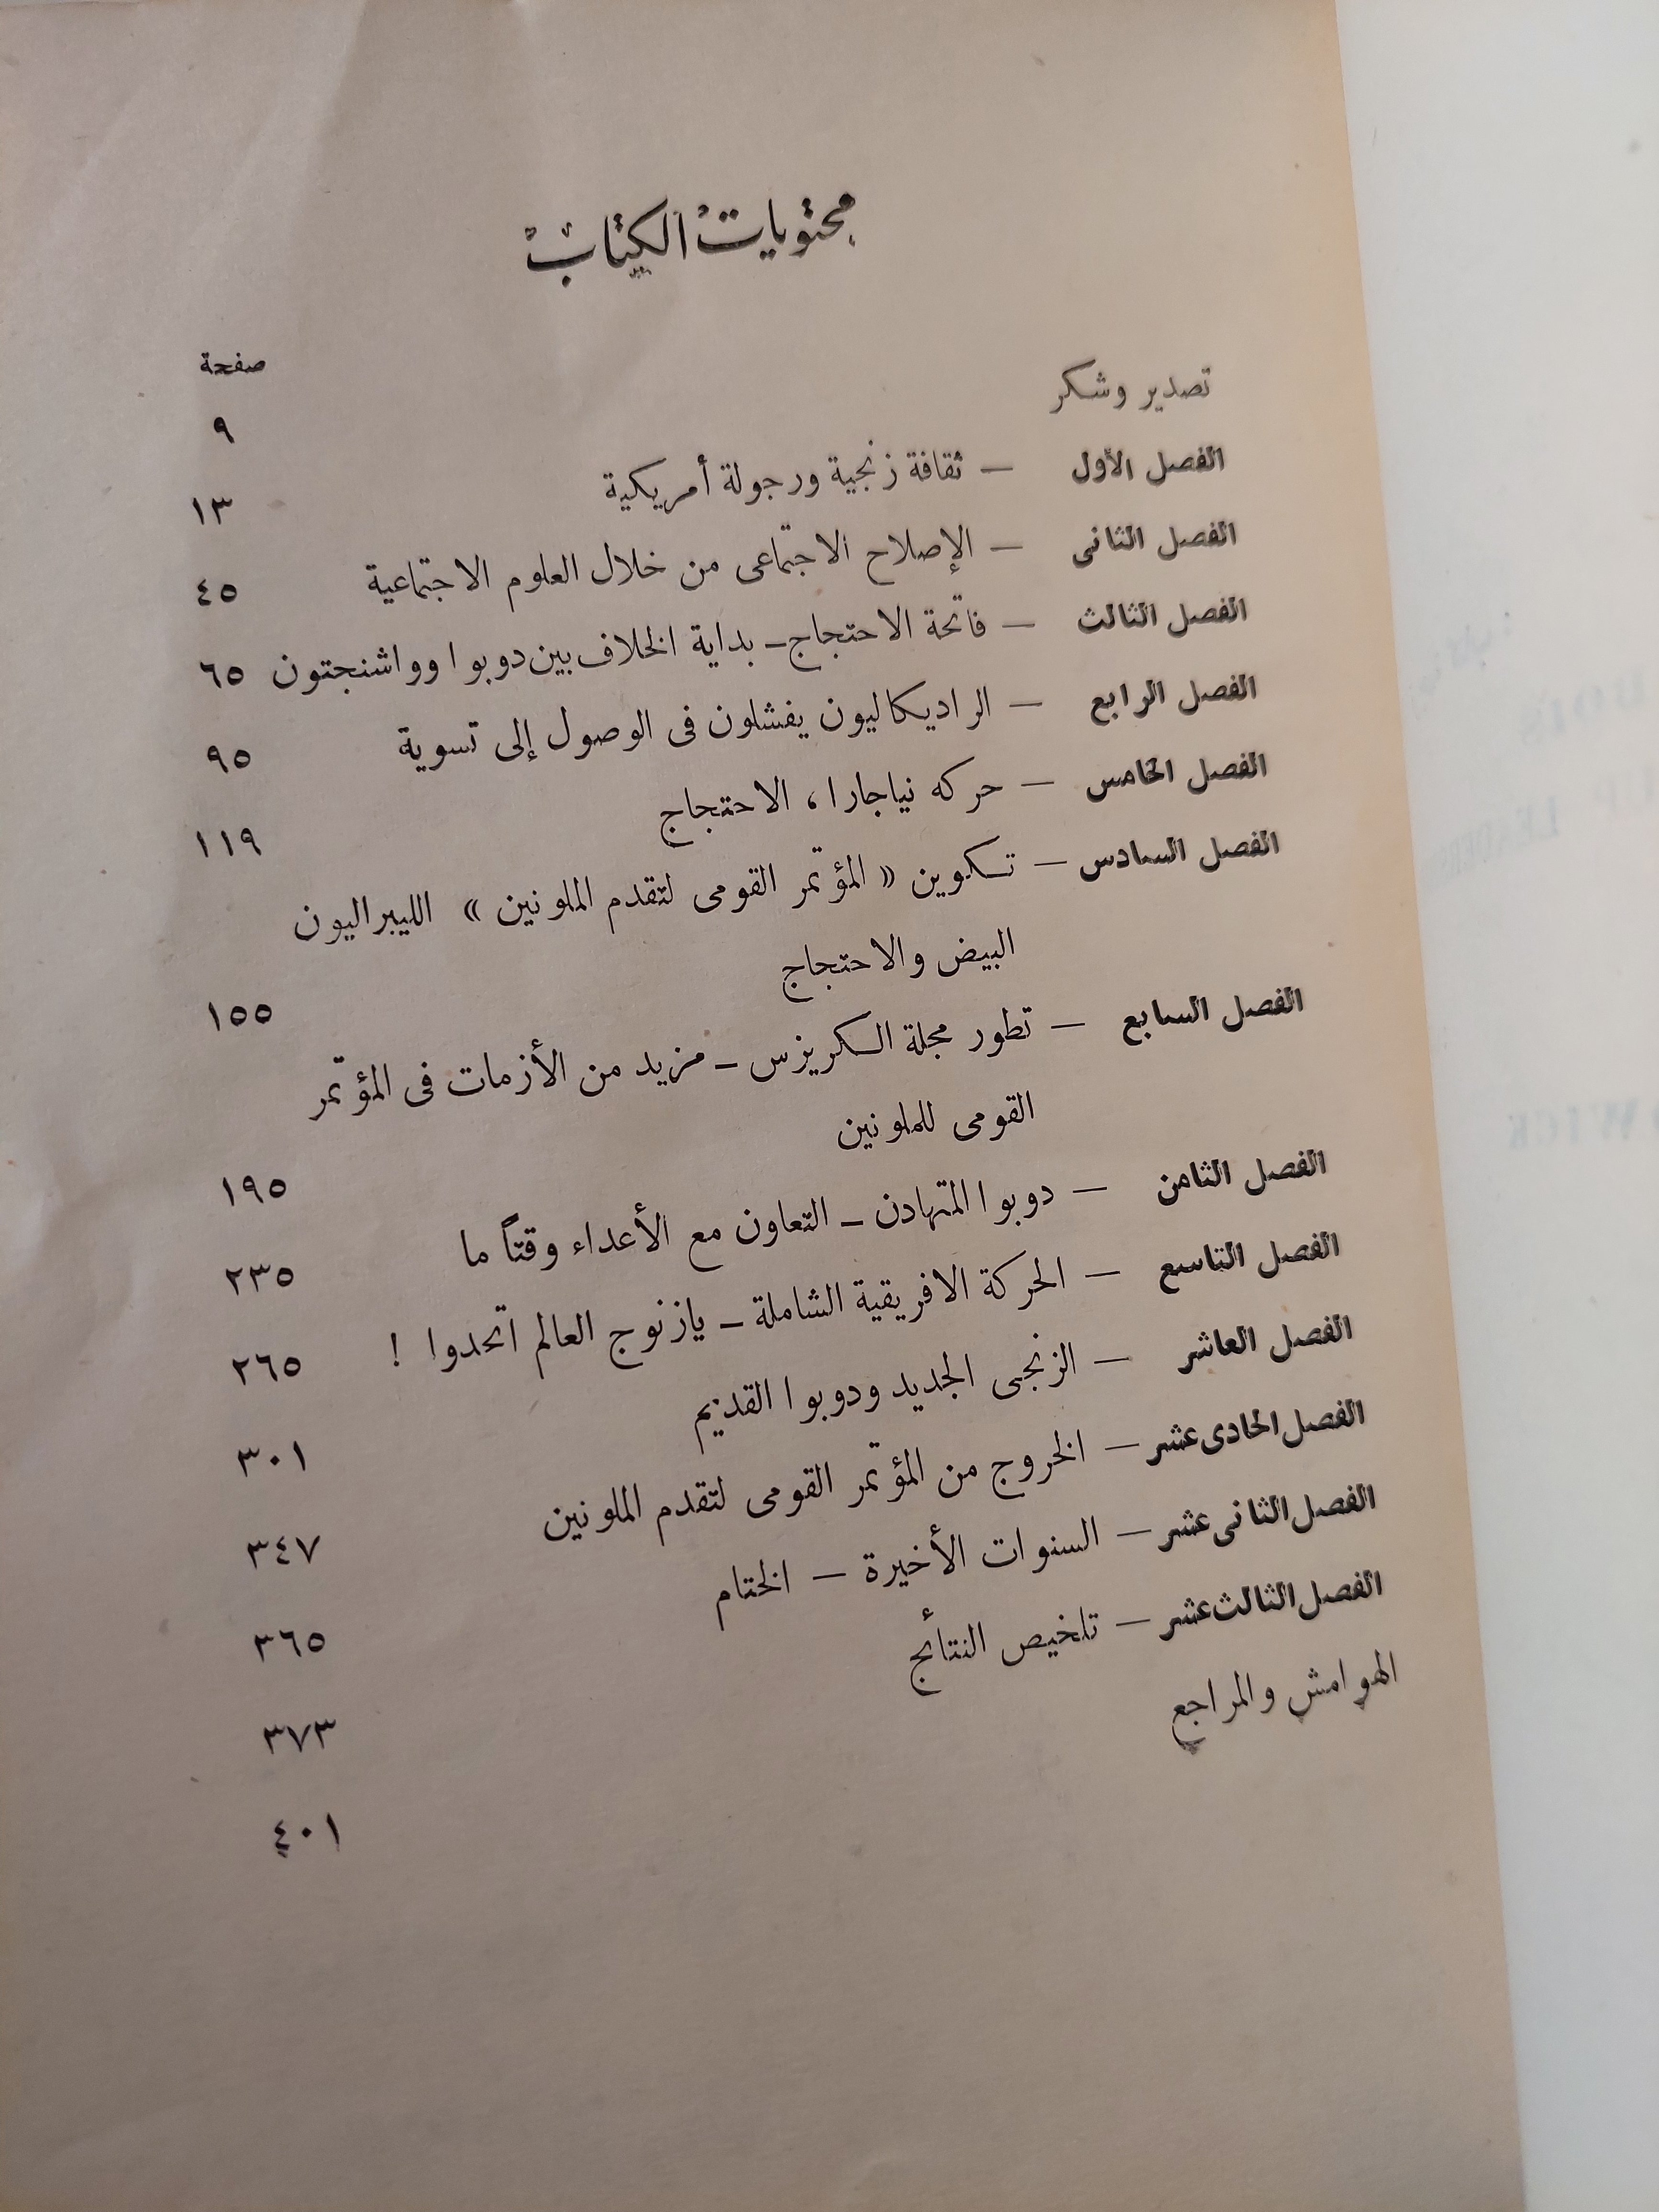 محتويات الكتاب
صفحة
تصدير وشكر ٩
الفصل الأول — ثقافة زنجية ورجولة أمريكية ١٣
الفصل الثانى — الإصلاح الاجتماعى من خلال العلوم الاجتماعية ٤٥
الفصل الثالث — فاتحة الاحتجاج – بداية الخلاف بين دوبوا وواشنجتون ٦٥
الفصل الرابع — الراديكاليون يفشلون فى الوصول إلى تسوية ٩٥
الفصل الخامس — حركه نياجارا ، الاحتجاج ١١٩
الفصل السادس — تكوين « المؤتمر القومى لتقدم الملونين » الليبراليون
البيض والاحتجاج ١٥٥
الفصل السابع — تطور مجلة الكريزس – مزيد من الأزمات فى المؤتمر
القومى للملونين ١٩٥
الفصل الثامن — دوبوا المتهادن – التعاون مع الأعداء وقتاً ما ٢٣٥
الفصل التاسع — الحركة الافريقية الشاملة – يازنوج العالم اتحدوا ! ٢٦٥
الفصل العاشر — الزنجى الجديد ودوبوا القديم ٣٠١
الفصل الحادى عشر — الخروج من المؤتمر القومى لتقدم الملونين ٣٤٧
الفصل الثانى عشر — السنوات الأخيرة — الختام ٣٦٥
الفصل الثالث عشر — تلخيص النتائج ٣٧٣
الهوامش والمراجع ٤٠١